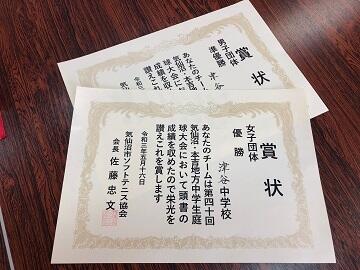 賞状
女子団体
優勝
津谷中学校
あなたのチームは第四十回
気仙沼・本吉地方中学生庭
球大会において頭書の
成績を収めたので栄光を
讃えこれを賞します
令和三年五月十六日
気仙沼市ソフトテニス協会
会長 佐藤忠文
賞状
男子団体
準優勝
津谷
あなたのチーム
気仙沼・本
球大会に
成績を収
讃えこれ
令和三